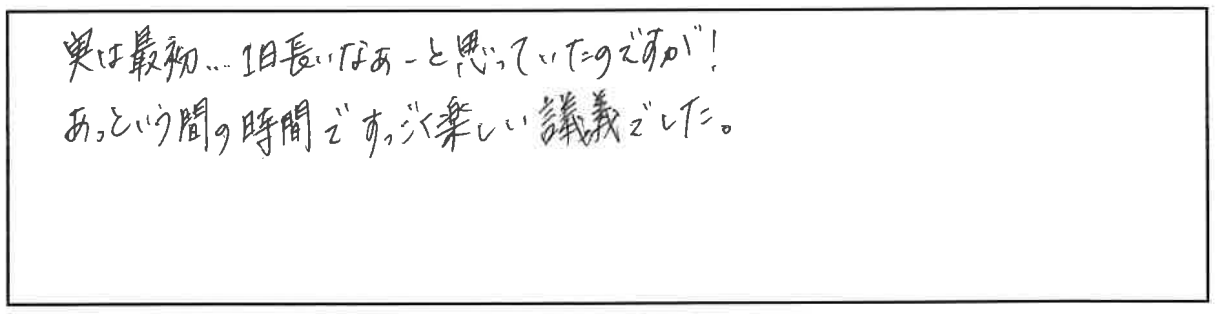 実は最初…1日長いなぁーと思っていたのですが!
あっという間の時間ですっごく楽しい講義でした。